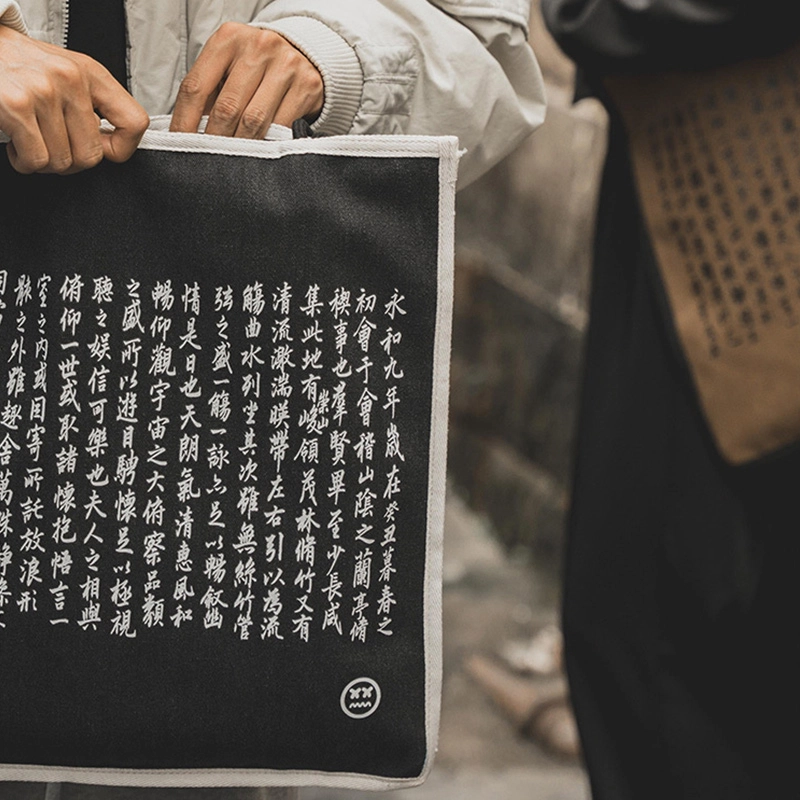 永和九年歲在癸丑暮春之
初會于會稽山陰之蘭亭脩
禊事也羣賢畢至少長咸
集此地有崇山峻領茂林脩竹又有
清流激湍暎帶左右引以為流
觴曲水列坐其次雖無絲竹管
弦之盛一觴一詠亦足以暢敘幽
情是日也天朗氣清惠風和
暢仰觀宇宙之大俯察品類
之盛所以遊目騁懷足以極視
聽之娛信可樂也夫人之相與
俯仰一世或取諸懷抱悟言一
室之內或因寄所託放浪形
骸之外雖趣舍萬殊靜躁不